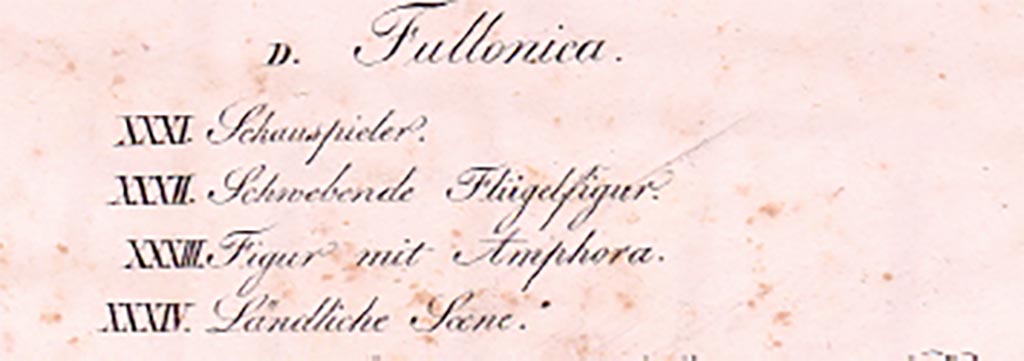 D. Fullonica.
XXXI. Schauspieler.
XXXII. Schwebende Flügelfigur.
XXXIII. Figur mit Amphora.
XXXIV. Ländliche Scene.